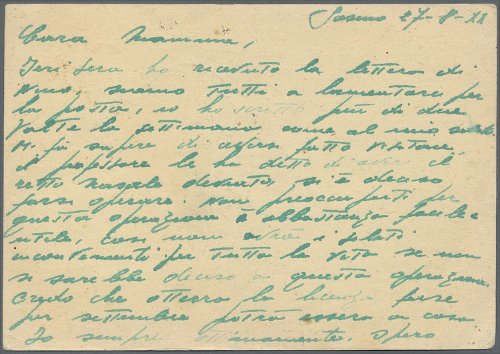 27-8-XX
Cara Mamma,
Ieri sera ho ricevuto la lettera di
Nino, siamo tutti a lamentarci per
la posta, io ho scritto più di due
volte la settimana come al mio
Mi fa sapere di essersi fatto visitare,
il professore le ha detto di avere il
setto nasale deviato, si è deciso
farsi operare. Non preoccuparti per
questa operazione è abbastanza facile e
utile, così non avrà i soliti
inconvenienti per tutta la vita se non
si sarebbe deciso a questa operazione.
Credo che otterrò la licenza forse
per settembre potrò essere a casa
Io sempre ottimamente. Spero